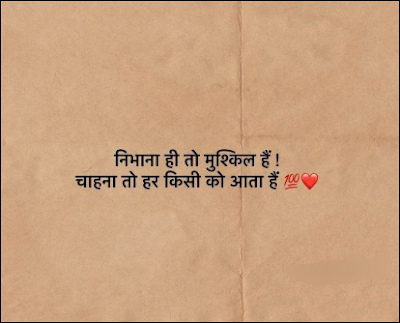 निभाना ही तो मुश्किल हैं !
चाहना तो हर किसी को आता हैं 💯❤️